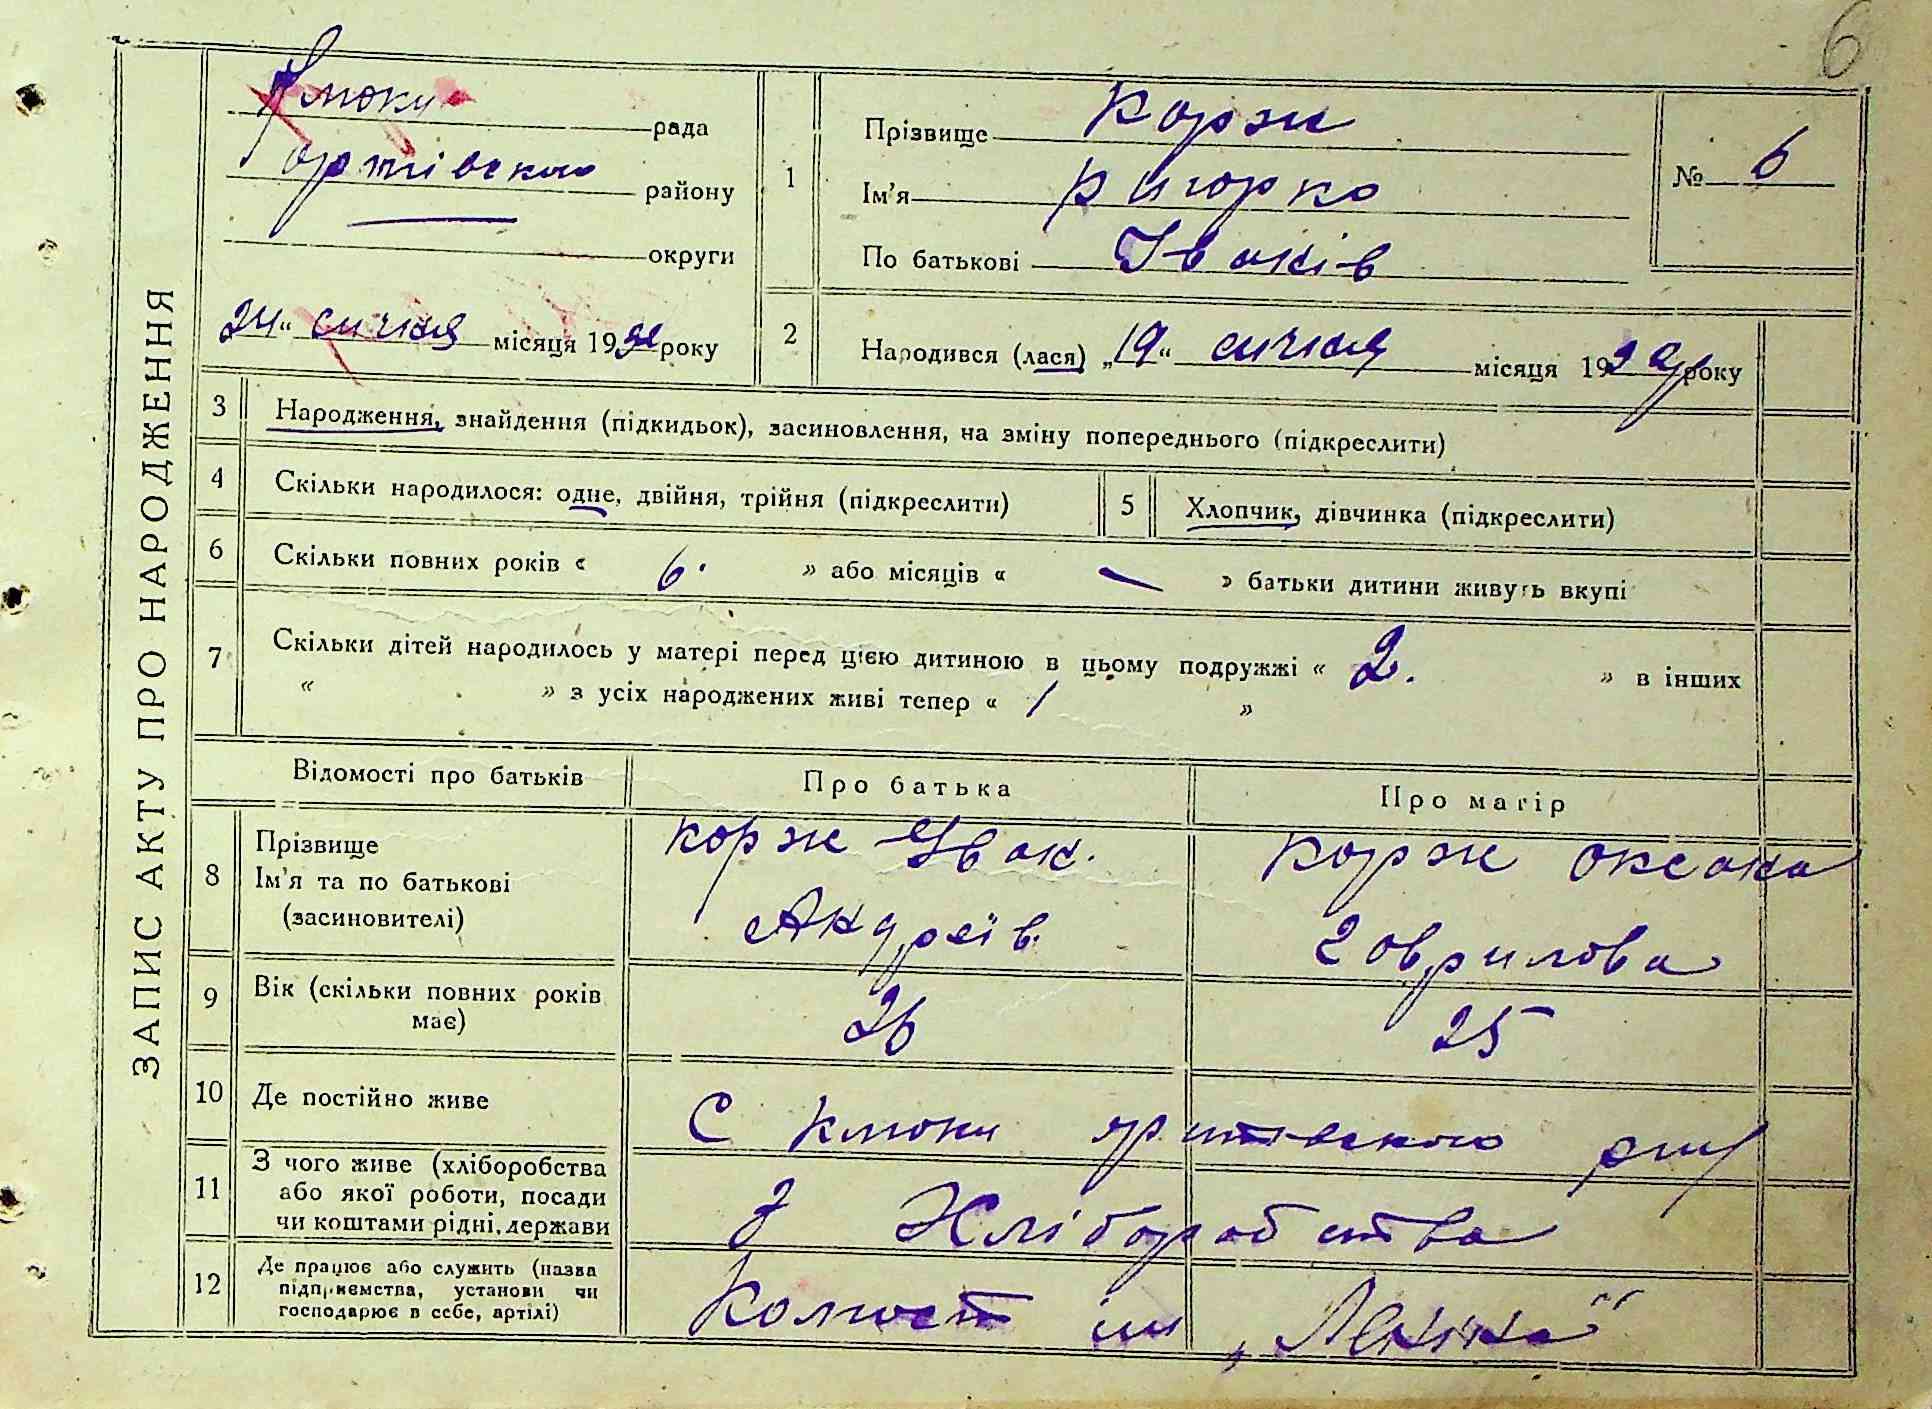 6
ЗАПИС АКТУ ПРО НАРОДЖЕННЯ
Клюки рада
району
округи
24 " січня місяця 19 року
1
Прізвище Корж
Ім'я Григорко
По батькові Іванів
№ 6
2 Народився (лася) „ 19 " січня місяця 19 року
3 Народження, знайдення (підкидьок), засиновлення, на зміну попереднього (підкреслити)
4 Скільки народилося: одне, двійня, трійня (підкреслити) 5 Хлопчик, дівчинка (підкреслити)
6 Скільки повних років « 6. » або місяців « — » батьки дитини живуть вкупі
7 Скільки дітей народилось у матері перед цією дитиною в цьому подружжі « 2. » в інших
« » з усіх народжених живі тепер « 1 »
Відомості про батьків Про батька Про матір
8 Прізвище
Ім'я та по батькові
(засиновителі)
Корж Іван.
Андреїв.
Корж Оксана
Гаврилова
9 Вік (скільки повних років має) 26 25
10 Де постійно живе С Клюки
11 З чого живе (хліборобства
або якої роботи, посади
чи коштами рідні, держави
З Хліборобства
12 Де працює або служить (назва
підприємства, установи чи
господарює в себе, артілі)
ім „Леніна"